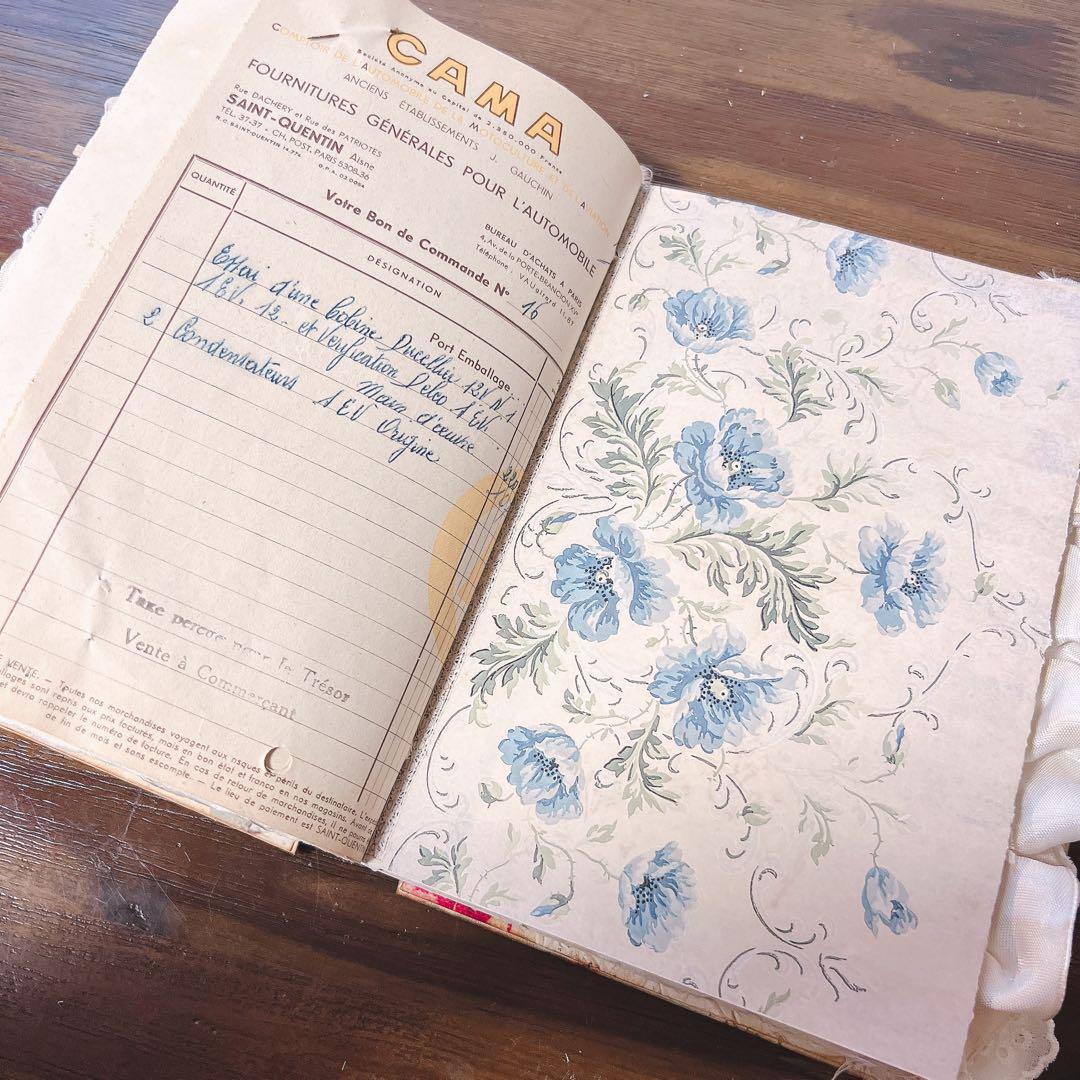 CAMA
Société Anonyme au Capital de 2.350.000 Francs
COMPTOIR DE L'AUTOMOBILE DE LA MOTOCULTURE ET DE L'AVIATION
ANCIENS ÉTABLISSEMENTS J. GAUCHIN
FOURNITURES GÉNÉRALES POUR L'AUTOMOBILE
Rue DACHERY et Rue des PATRIOTES
SAINT-QUENTIN Aisne
TÉL. 37-37 - CH. POST. PARIS 5308.36
R.C. SAINT-QUENTIN 14.774
O.P.A. 02.0054
BUREAU D'ACHATS A PARIS
4, Av. de la PORTE-BRANCION XVe
Téléphone : VAUgirard 11.87
Votre Bon de Commande N° 16
QUANTITÉ
DÉSIGNATION
Port Emballage
Essai d'une bobine Ducellier 12V N°1
1 EV. 12. et Vérification Delco 1 EV.
Main d'œuvre
2 Condensateurs 1 EV Origine
Taxe perçue pour le Trésor
Vente à Commerçant
VENTE. — Toutes nos marchandises voyagent aux risques et périls du destinataire.
allages sont repris aux prix facturés, mais en bon état et franco en nos magasins. Avant
et devra rappeler le numéro de facture. En cas de retour de marchandises, il ne pourra
de fin de mois et sans escompte. — Le lieu de paiement est SAINT-QUENTIN